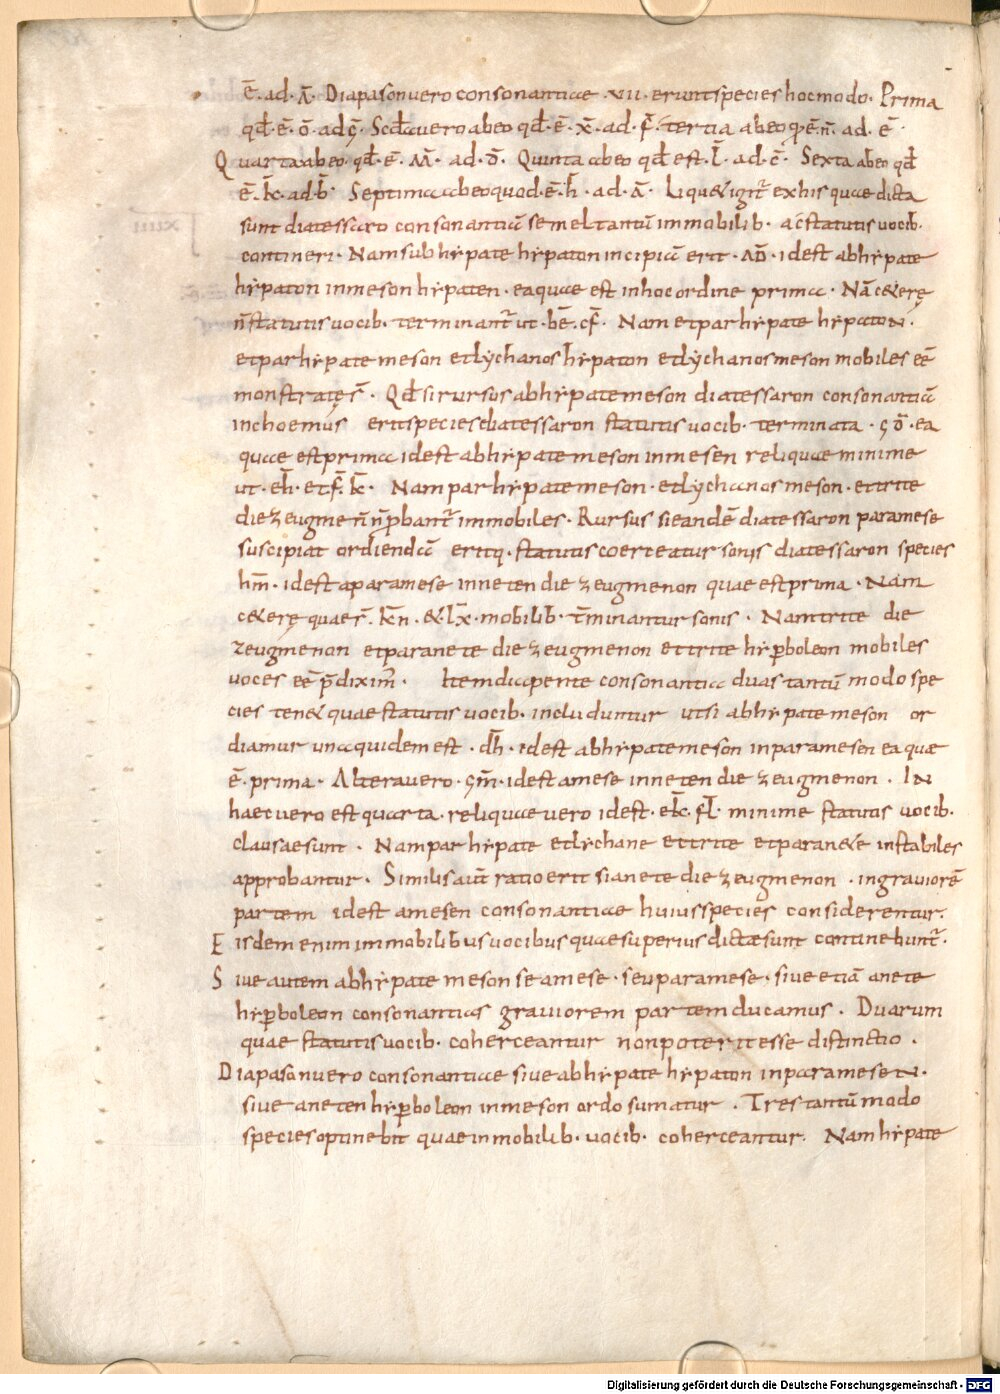 ē·ad·ā· Diapason vero consonantiae ·vii· erunt species hoc modo· Prima
qd̄·ē·ō·ad ç̄· Scd̄a uero ab eo qd̄·ē·x̄·ad·f̄· tertia ab eo qꝫ ē·n̄· ad·ē·
Quarta ab eo· qd̄·ē·m̄· ad·d̄· Quinta ab eo qd̄ est·l̄·ad·c̄· Sexta ab eo qd̄
ē·k̄·ad·b̄· Septima ab eo quod·ē·h̄·ad·ā· Liquet igit̄ ex his quae dicta
sunt diatessaro consonantiā semel tantū immobilib· ac statutis uocib·
contineri· Nam sub hypate hypaton incipiā erit·AD̄·idest ab hypate
hypaton in meson hypaten· ea quae est in hoc ordine prima· Nā cęterę
n̄ statutis uocib· terminant̄ ut·bē·cf̄· Nam et par hypate hypaton·
et par hypate meson et lychanos hypaton et lychanos meson mobiles eē
monstratęs̄· Qd̄ si rursos ab hypate meson diatessaron consonantiā
inchoemus erit species diatessaron statutis uocib· terminata·çō·ea
quae est prima idest ab hypate meson in mesen reliquae minime
ut·eh̄·et f̄·k̄· Nam par hypate meson· et lychanos meson· et trite
diezeugmen̄ n̄ ꝓbant̄ immobiles· Rursus si eandē diatessaron paramese
suscipiat ordiendā eritq· statutis coerceatur sonis diatessaron species
hm̄·idest a paramese in neten diezeugmenon quae est prima· Nam
cęterę quae s̄·k̄n·&·l̄x̄·mobilib· t̄minantur sonis· Nam trite die
zeugmenon et paranete diezeugmenon et trite hyꝑboleon mobiles
uoces eē p̄dixim̄· Item diapente consonantia duas tantū modo spe
cies tenet quae statutis uocib· includuntur ut si ab hypate meson or
diamur una quidem est·dh̄·idest ab hypate meson in paramesen ea quae
ē·prima· Altera uero·çm̄·idest a mese in neten diezeugmenon· IN
haec uero est quarta· reliquae uero idest·ek̄·fl̄· minime statutis uocib·
clausae sunt· Nam par hypate et lychane et trite et paranete instabiles
approbantur· Similis aut̄ ratio erit si a nete diezeugmenon· in grauiorē
partem idest a mesen consonantiae huius species considerentur·
Eisdem enim immobilibus uocibus quae superius dictae sunt continebunt̄·
Siue autem ab hypate meson se a mese· seu paramese· siue etiā a nete
hyꝑboleon consonantias grauiorem partem ducamus· Duarum
quae statutis uocib· coherceantur non poterit esse distinctio·
Diapason uero consonantiae siue ab hypate hypaton in paramesen·
siue a neten hyꝑboleon in meson ordo sumatur· Tres tantū modo
species optinebit quae inmobilib· uocib· coherceantur· Nam hypate
Digitalisierung gefördert durch die Deutsche Forschungsgemeinschaft - DFG